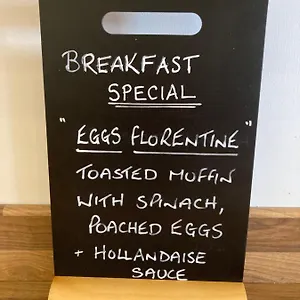 BREAKFAST
SPECIAL
"EGGS FLORENTINE"
TOASTED MUFFIN
WITH SPINACH,
POACHED EGGS
+ HOLLANDAISE
SAUCE